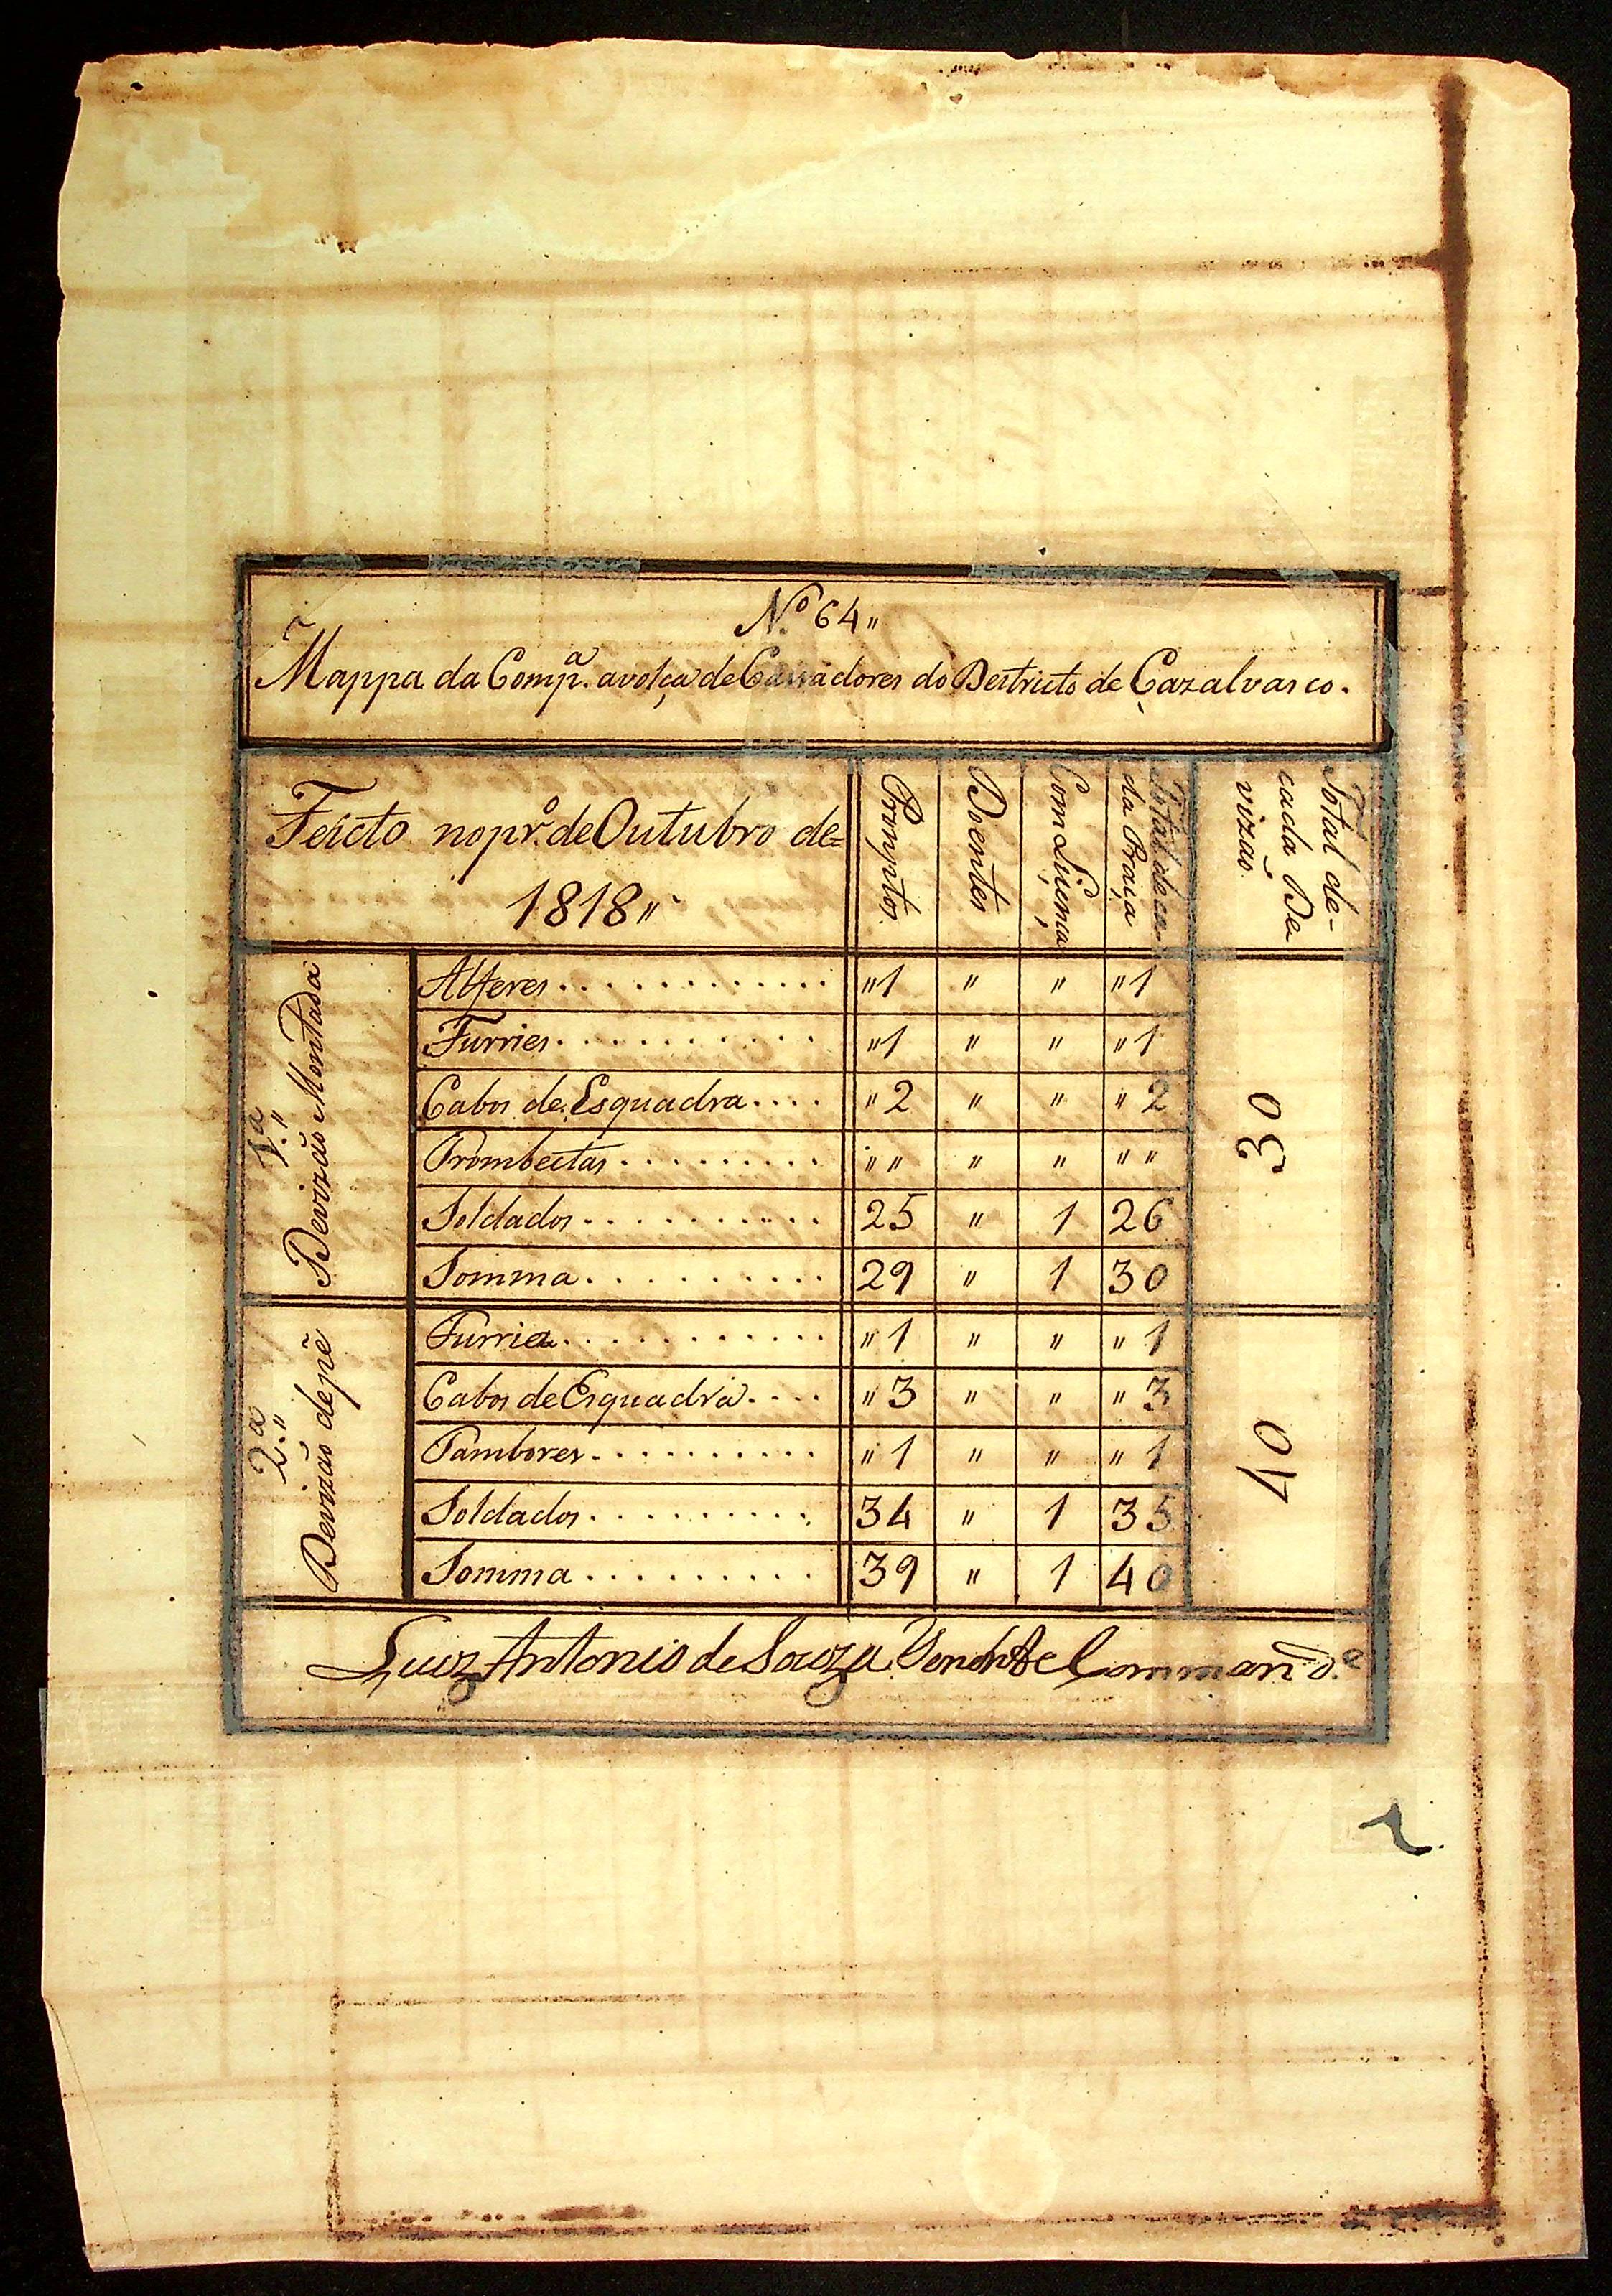 N.º 64 "
Mappa da Comp.ª avolça de Cassadores do Destricto de Cazalvasco.
Feicto no pr.º de Outubro de=
1818 "
Promptos.
Doentes
Com Liçença
Total de ca
da Praça
Total de-
cada De
vizaõ.
1.ª "
Devizaõ Montada
Alferes . . . . . . . . . . . . "1 " " "1
Furries . . . . . . . . . . . "1 " " "1
Cabos de Esquadra . . . . "2 " " "2
Trombeitas . . . . . . . . . "" " " ""
Soldados . . . . . . . . . . 25 " 1 26
Somma . . . . . . . . . . 29 " 1 30
30
2.ª "
Devizaõ de pé
Furriea . . . . . . . . . . . . "1 " " "1
Cabos de Esquadra . . . . "3 " " "3
Tambores . . . . . . . . . . "1 " " "1
Soldados . . . . . . . . . . 34 " 1 35
Somma . . . . . . . . . . 39 " 1 40
40
Luiz Antonio de Souza Tenente Command.e